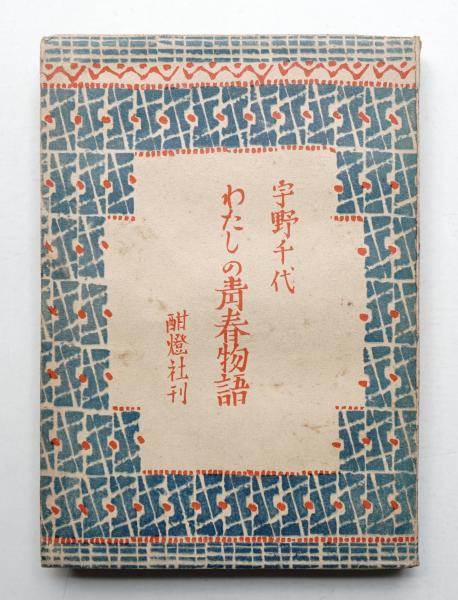 宇野千代
わたしの青春物語
酣燈社刊